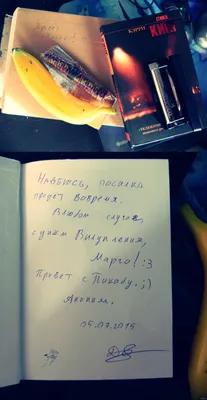 КИНГ
Надеюсь, посылка
придет вовремя.
В любом случае,
с днем Вылупления,
Марго! :3
Привет с Пикабу. ;)
Аноним.
05.07.2015